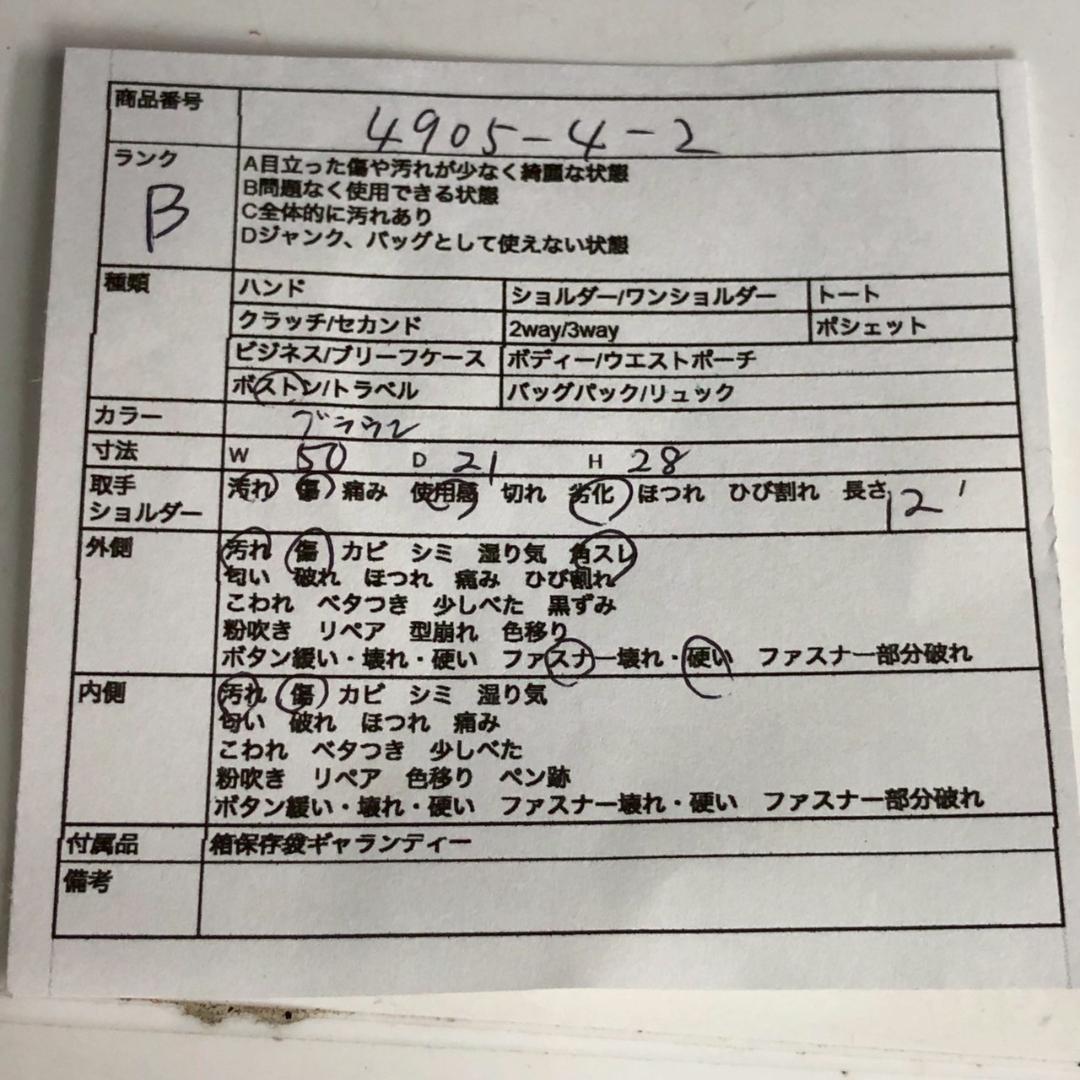 商品番号 4905-4-2
ランク B
A目立った傷や汚れが少なく綺麗な状態
B問題なく使用できる状態
C全体的に汚れあり
Dジャンク、バッグとして使えない状態
種類 ハンド ショルダー/ワンショルダー トート
クラッチ/セカンド 2way/3way ポシェット
ビジネス/ブリーフケース ボディー/ウエストポーチ
ボストン/トラベル バッグパック/リュック
カラー ブラウン
寸法 W 50 D 21 H 28
取手 汚れ 傷 痛み 使用感 切れ 劣化 ほつれ ひび割れ 長さ 12
ショルダー
外側 汚れ 傷 カビ シミ 湿り気 角スレ
匂い 破れ ほつれ 痛み ひび割れ
こわれ ベタつき 少しべた 黒ずみ
粉吹き リペア 型崩れ 色移り
ボタン緩い・壊れ・硬い ファスナー壊れ・硬い ファスナー部分破れ
内側 汚れ 傷 カビ シミ 湿り気
匂い 破れ ほつれ 痛み
こわれ ベタつき 少しべた
粉吹き リペア 色移り ペン跡
ボタン緩い・壊れ・硬い ファスナー壊れ・硬い ファスナー部分破れ
付属品 箱保存袋ギャランティー
備考